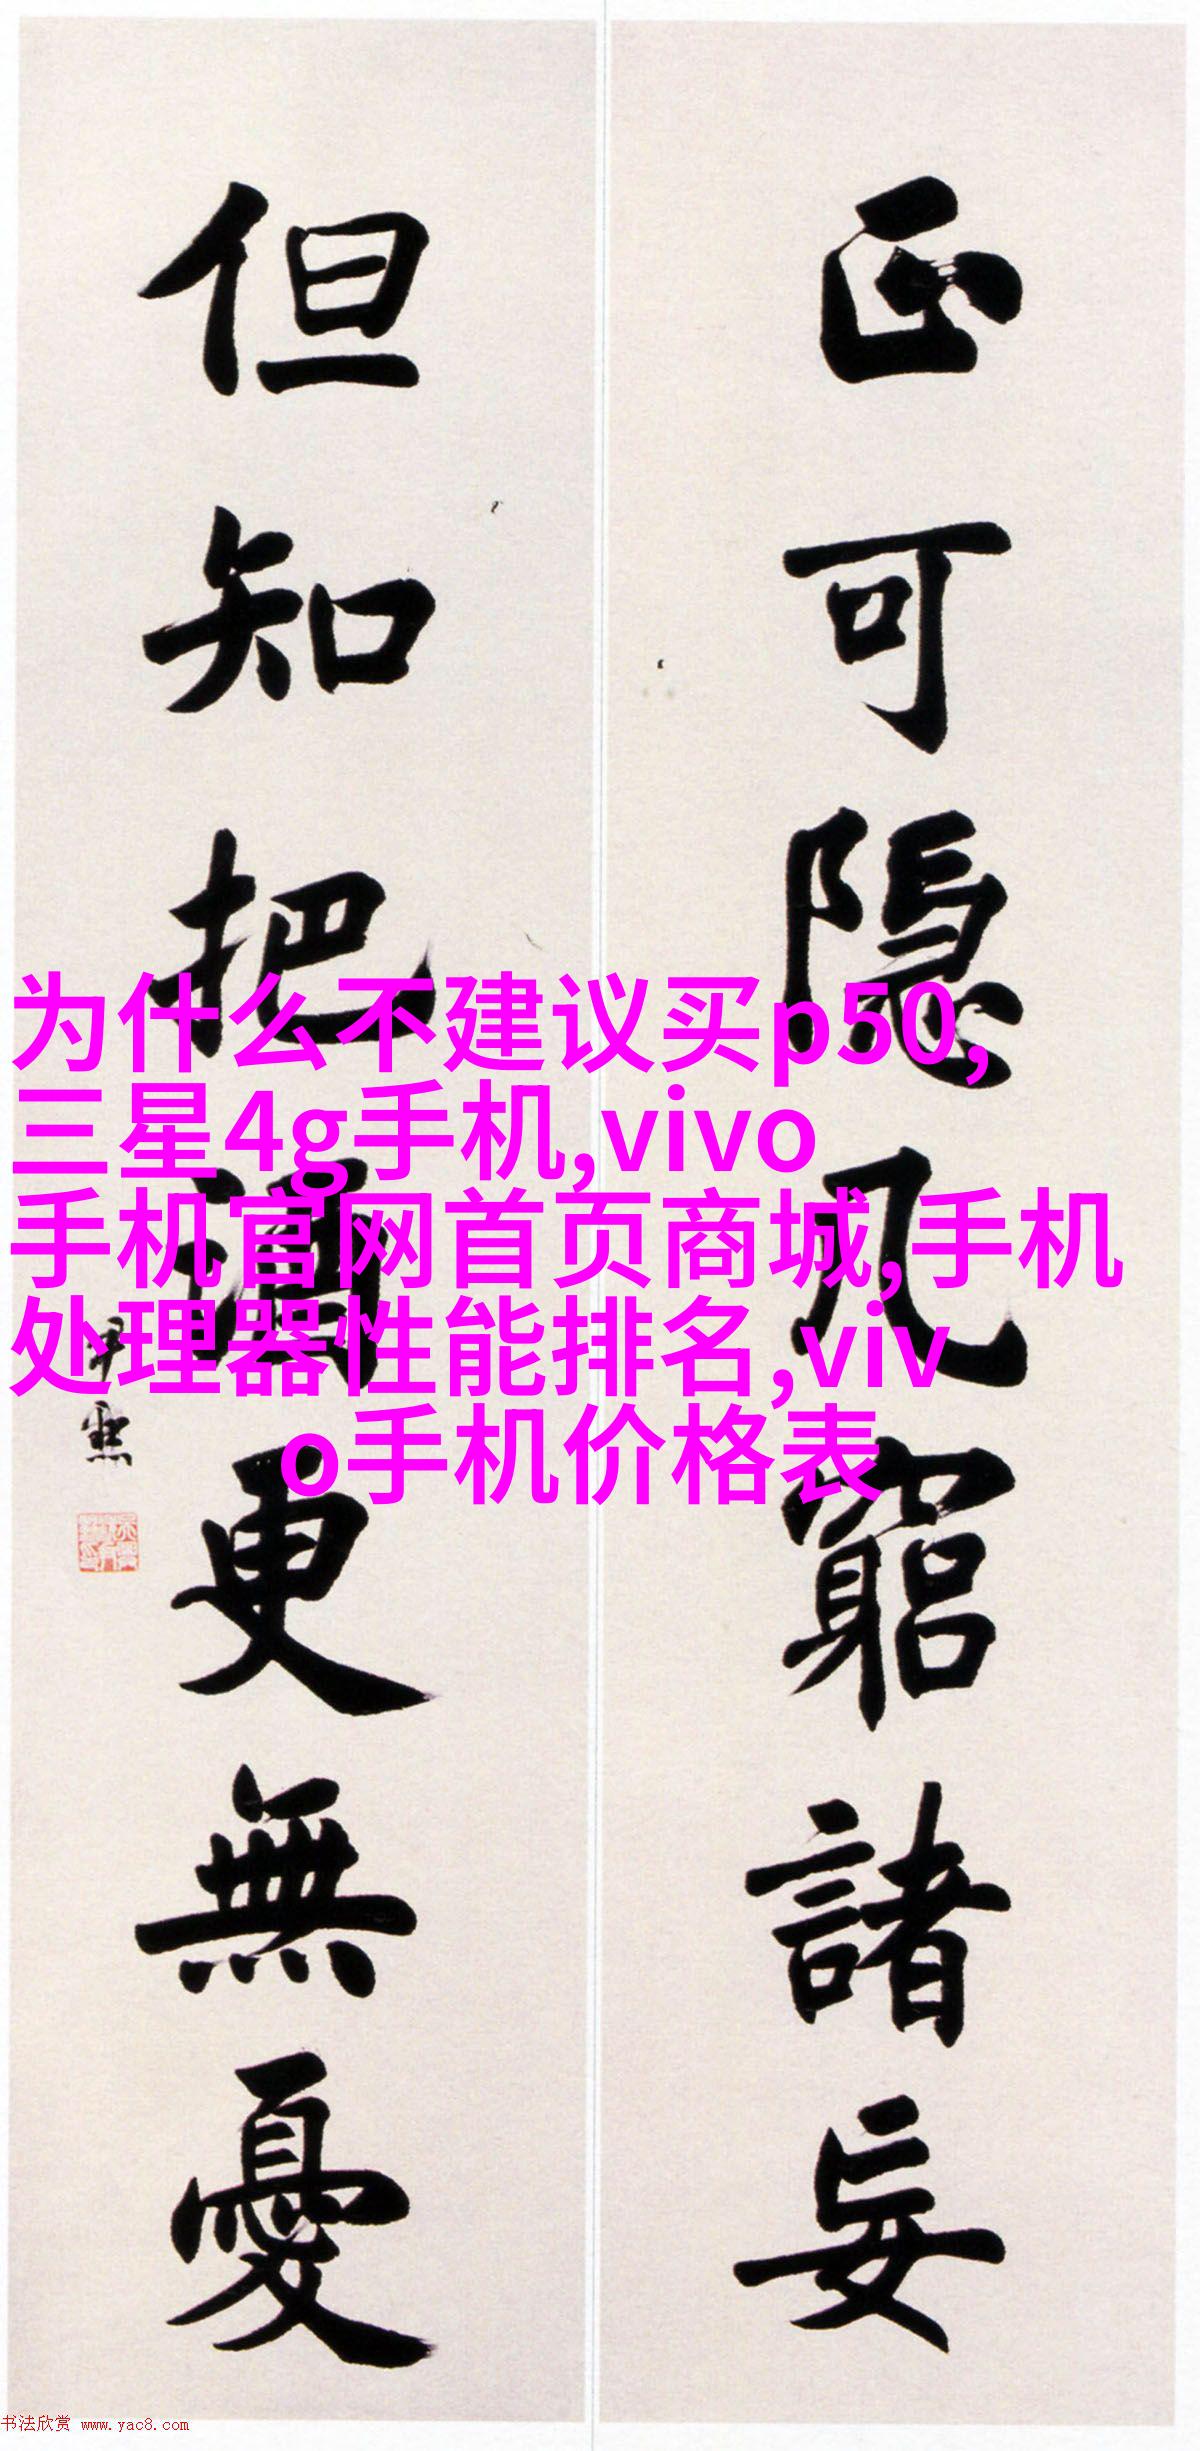 正可隱几窮諸妄
但知把酒更無憂
尹默
为什么不建议买p50,
三星4g手机,vivo
手机官网首页商城,手机
处理器性能排名,viv
o手机价格表
书法欣赏 www.yac8.com